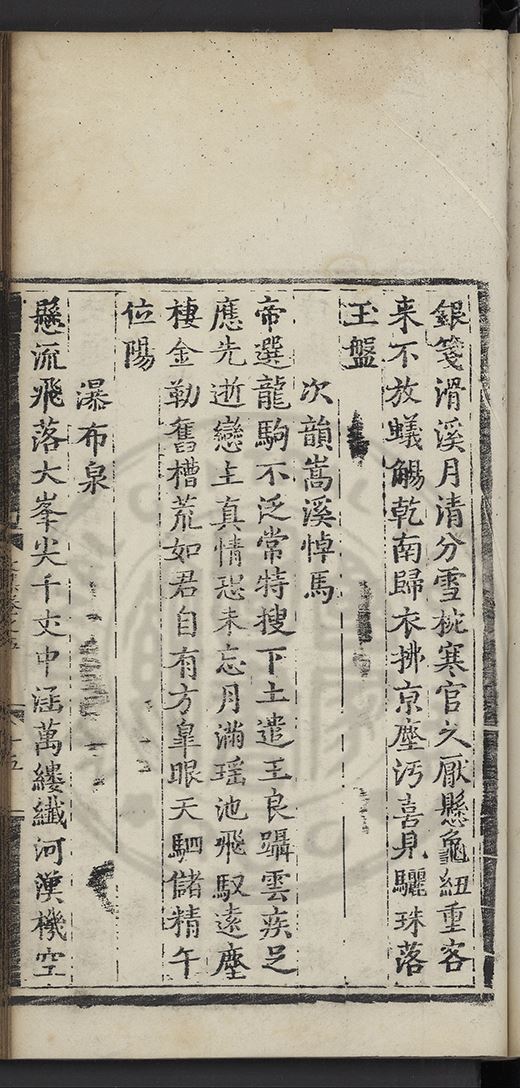 銀箋滑溪月清分雪椀寒官久厭懸龜紐重客
来不放蟻觴乾南歸衣拂京塵污喜見驪珠落
玉盤
次韻嵩溪悼馬
帝選龍駒不泛常特搜下土遣王良躡雲疾足
應先逝戀主真情恐未忘月滿瑶池飛馭遠塵
棲金勒舊槽荒如君自有方臯眼天駟儲精午
位陽
瀑布泉
懸流飛落大峯尖千丈中涵萬縷纖河漢機空